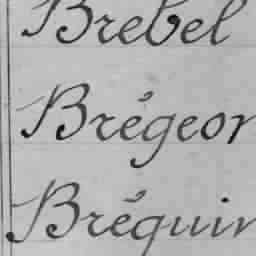 Brebel
Brégeon
Bréquin